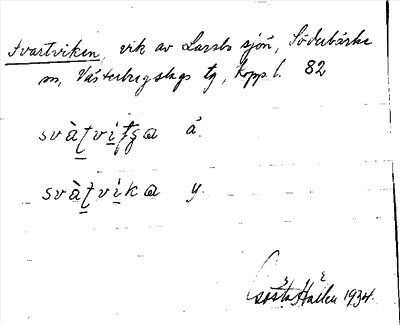 Svartviken, vik av Larsbo sjön, Söderbärke
sn, Västerbergslags tg, Kopp. l. 82
svàṭvi̱tʂa å.
svàṭvi̱ka y.
Gösta Hallén 1934.